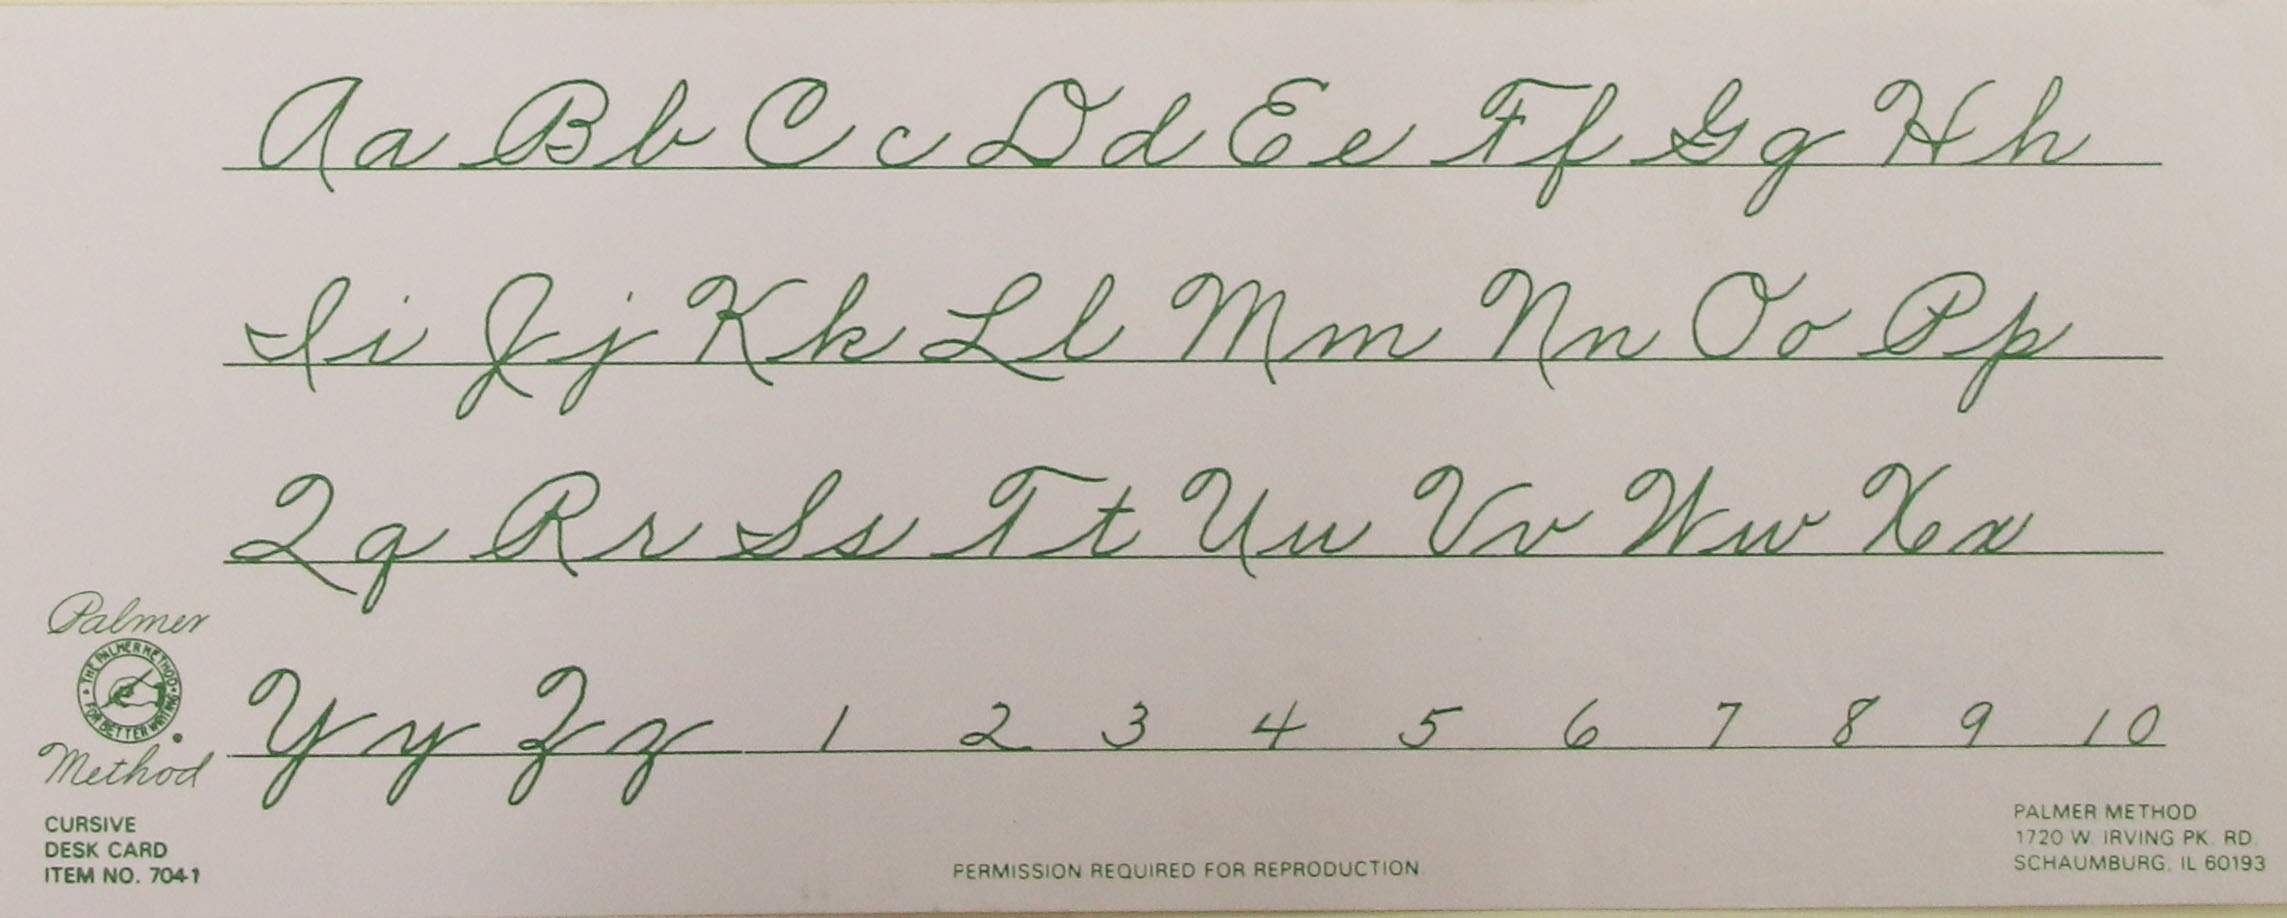 Aa Bb Cc Dd Ee Ff Gg Hh
Ii Jj Kk Ll Mm Nn Oo Pp
Qq Rr Ss Tt Uu Vv Ww Xx
Yy Zz 1 2 3 4 5 6 7 8 9 10
Palmer
THE PALMER METHOD
FOR BETTER WRITING
Method
CURSIVE
DESK CARD
ITEM NO. 7041
PERMISSION REQUIRED FOR REPRODUCTION
PALMER METHOD
1720 W. IRVING PK. RD.
SCHAUMBURG, IL 60193